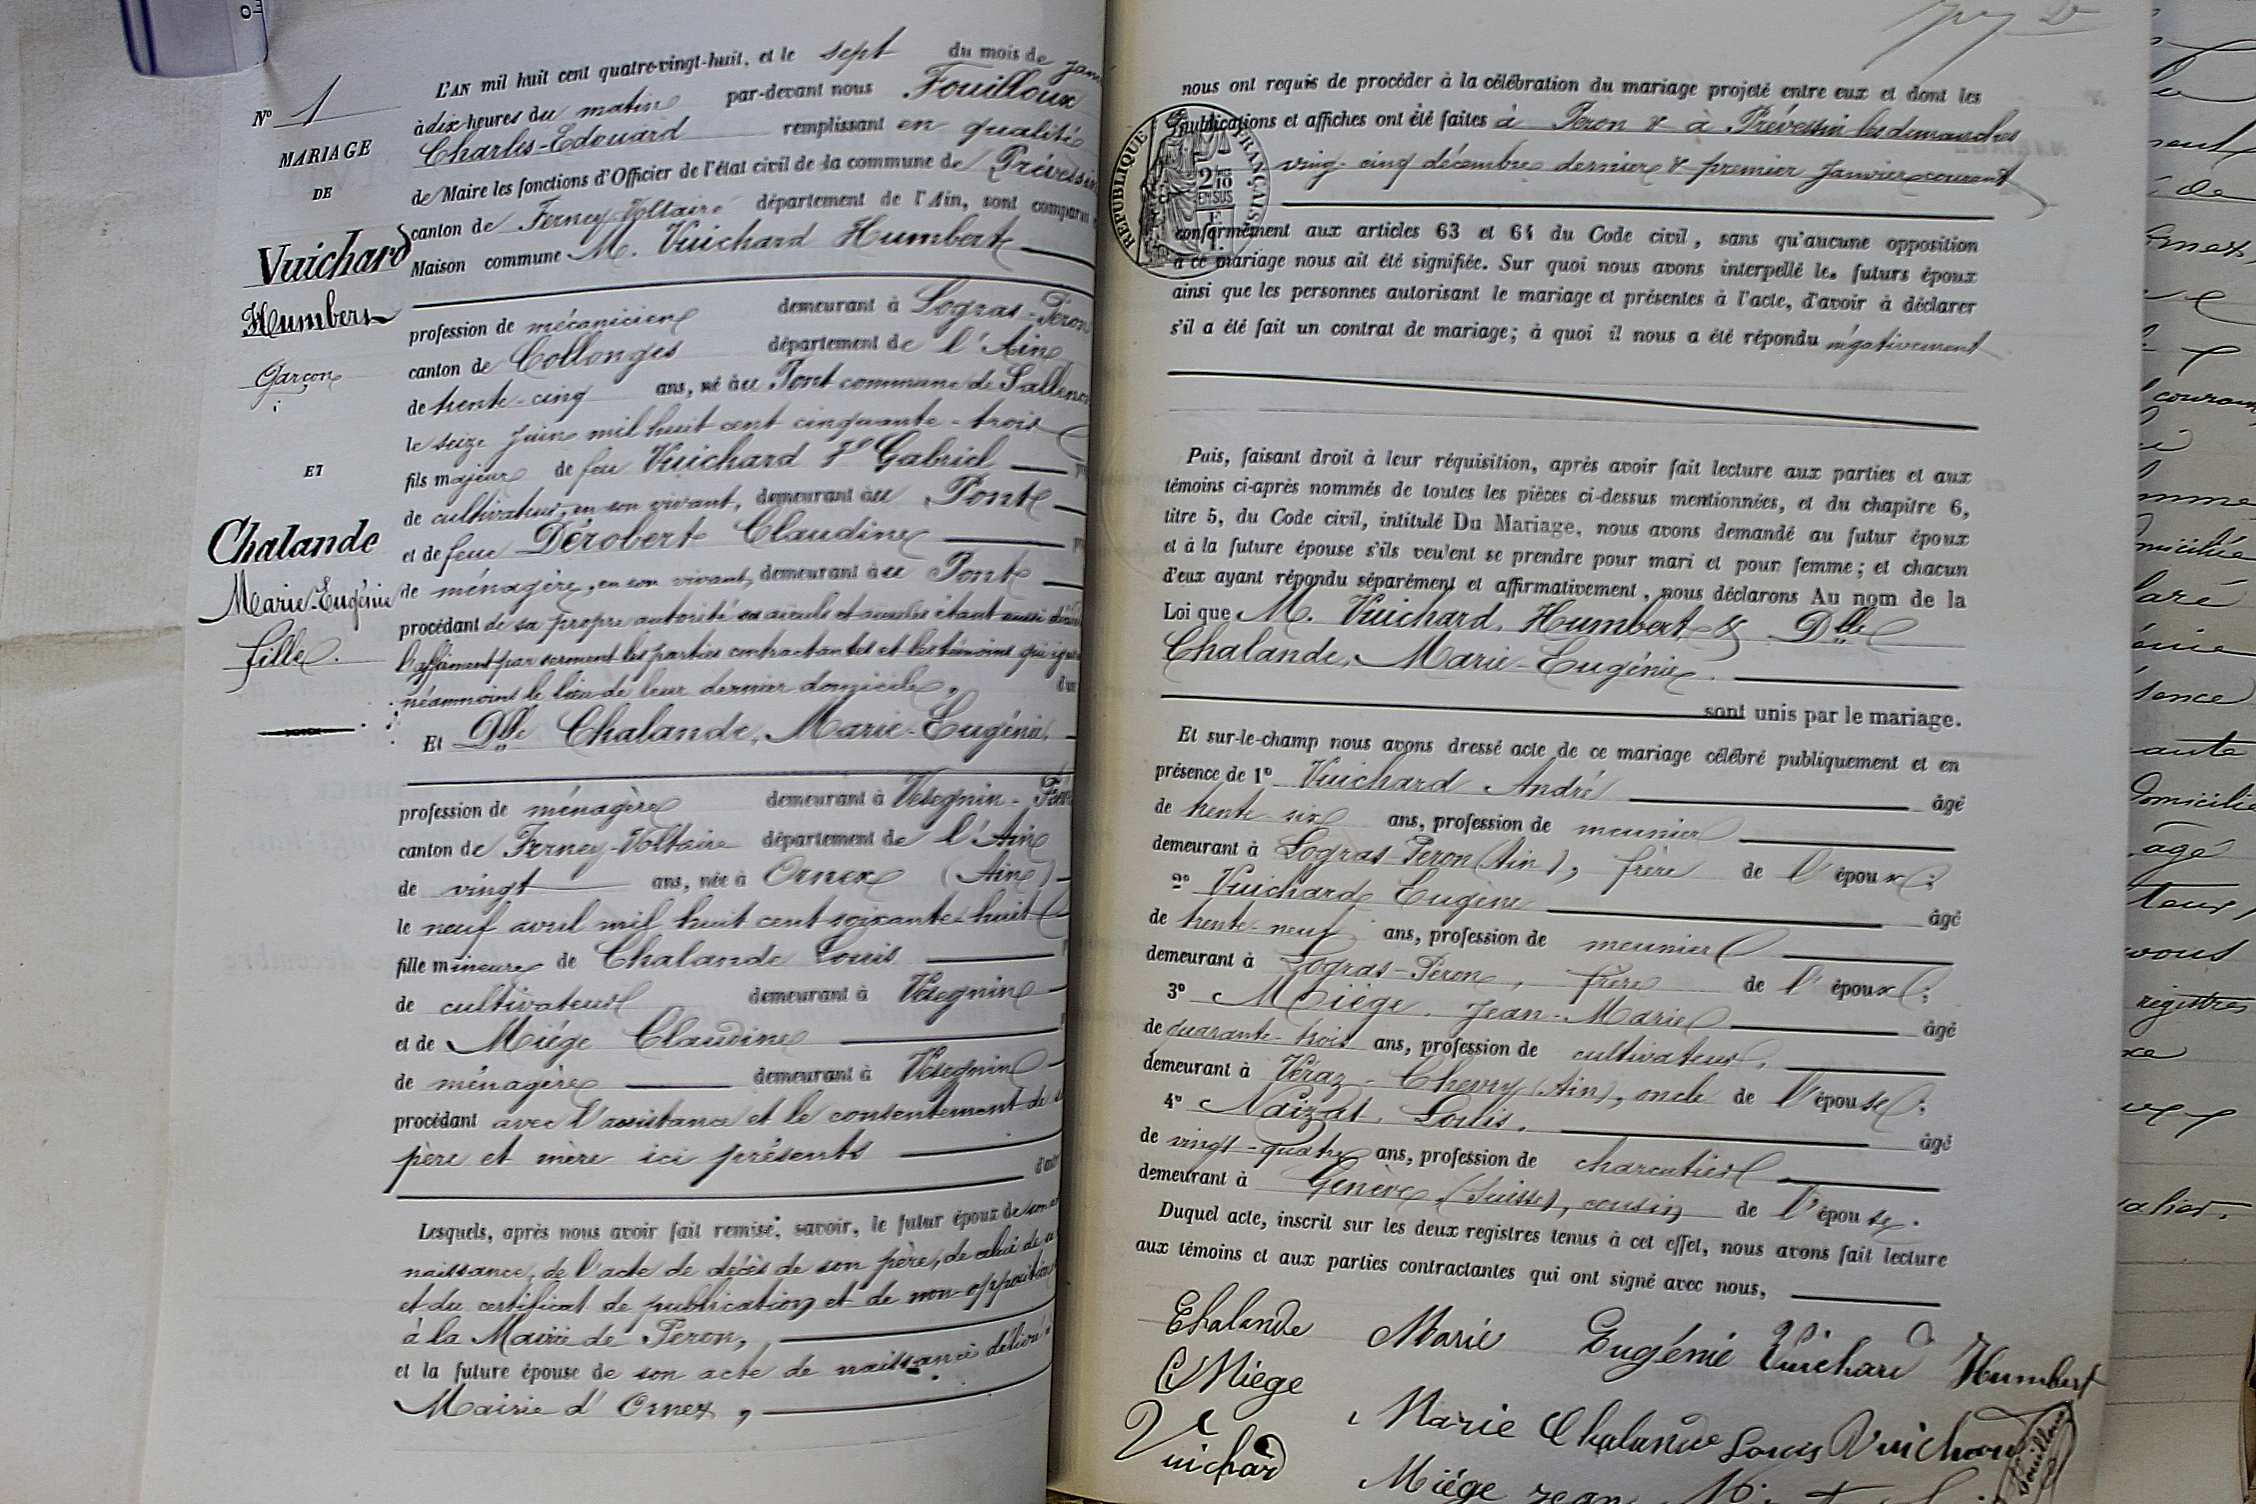 Nº 1
MARIAGE
DE
Vuichard
Humbert
Garçon
ET
Chalande
Marie-Eugénie
fille.
L'AN mil huit cent quatre-vingt-huit, et le sept du mois de jan
à dix heures du matin par-devant nous Fouilloux
Charles-Edouard remplissant en qualité
de Maire les fonctions d'Officier de l'état civil de la commune de Prévessin
canton de Ferney-Voltaire département de l'Ain, sont comparu
Maison commune M. Vuichard Humbert
profession de mécanicien demeurant à Logras-Péron
canton de Collonges département de l'Ain
de trente-cinq ans, né au Pont commune de Sallenov
le seize juin mil huit cent cinquante-trois
fils majeur de feu Vuichard Gabriel
de cultivateur, en son vivant, demeurant au Pont
et de feue Dérobert Claudine
de ménagère, en son vivant, demeurant au Pont
procédant de sa propre autorité ses aïeuls et aïeules étant aussi
par serment les parties contractantes et les témoins qui
néanmoins le lieu de leur dernier domicile, d'u
Et Dlle Chalande, Marie-Eugénie,
profession de ménagère demeurant à Vésegnin-
canton de Ferney-Voltaire département de l'Ain
de vingt ans, née à Ornex (Ain)
le neuf avril mil huit cent soixante-huit
fille mineure de Chalande Louis
de cultivateur demeurant à Vésegnin
et de Miége Claudine
de ménagère demeurant à Vésegnin
procédant avec l'assistance et le consentement de s
père et mère ici présents
Lesquels, après nous avoir fait remise, savoir, le futur époux de son
naissance, de l'acte de décès de son père, de celui de
et du certificat de publication et de non-opposition
à la Mairie de Péron,
et la future épouse de son acte de naissance délivré
Mairie d'Ornex,
nous ont requis de procéder à la célébration du mariage projeté entre eux et dont les
publications et affiches ont été faites à Péron & à Prévessin les dimanches
vingt-cinq décembre dernier & premier janvier courant
RÉPUBLIQUE FRANÇAISE
2/10
EN SUS
conformément aux articles 63 et 64 du Code civil, sans qu'aucune opposition
à ce mariage nous ait été signifiée. Sur quoi nous avons interpellé les futurs époux
ainsi que les personnes autorisant le mariage et présentes à l'acte, d'avoir à déclarer
s'il a été fait un contrat de mariage; à quoi il nous a été répondu négativement
Puis, faisant droit à leur réquisition, après avoir fait lecture aux parties et aux
témoins ci-après nommés de toutes les pièces ci-dessus mentionnées, et du chapitre 6,
titre 5, du Code civil, intitulé Du Mariage, nous avons demandé au futur époux
et à la future épouse s'ils veulent se prendre pour mari et pour femme; et chacun
d'eux ayant répondu séparément et affirmativement, nous déclarons Au nom de la
Loi que M. Vuichard, Humbert & Dlle
Chalande, Marie-Eugénie.
sont unis par le mariage.
Et sur-le-champ nous avons dressé acte de ce mariage célébré publiquement et en
présence de 1º Vuichard André âgé
de trente six ans, profession de meunier
demeurant à Logras-Péron (Ain), frère de l'époux;
2º Vuichard Eugène âgé
de trente-neuf ans, profession de meunier
demeurant à Logras-Péron, frère de l'époux;
3º Miége, Jean-Marie âgé
de quarante-trois ans, profession de cultivateur,
demeurant à Véraz-Chevry (Ain), oncle de l'épouse;
4º Naizat, Louis, âgé
de vingt-quatre ans, profession de charcutier
demeurant à Genève (Suisse), cousin de l'épouse.
Duquel acte, inscrit sur les deux registres tenus à cet effet, nous avons fait lecture
aux témoins et aux parties contractantes qui ont signé avec nous,
Chalande Marie Eugénie Vuichard Humbert
C Miège Marie Chalande Louis Vuichard
Vuichard Miége Jean
Fouilloux